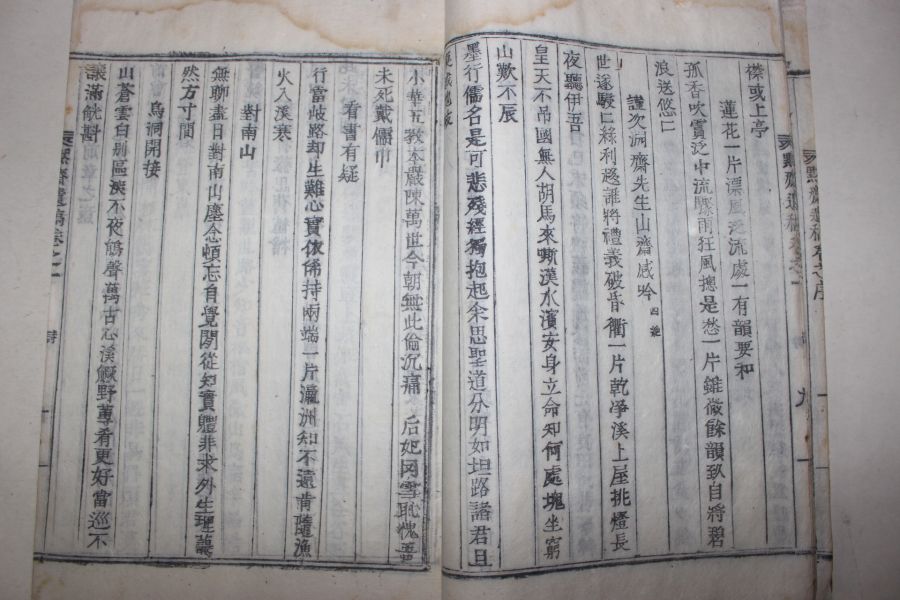 襟或上亭
蓮花一片漂風之流處一有韻要和
孤香吹賞泛中流驟雨狂風摠是愁一片雖微餘韻玖自將碧
浪送悠〻
謹次洞齋先生山齋感吟 四絶
世遂駸〻絲利慾誰將禮義破昏衢一片乾淨溪上屋挑燈長
夜聽伊吾
皇天不吊國無人胡馬來嘶漢水濱安身立命知何處塊坐窮
山歎不辰
墨行儒名是可悲殘經獨抱起余思聖道分明如坦路諸君且
小華五教本嚴陳萬世今朝無此倫沉痛 后妃罔雪恥愧吾
未死戴儒巾
看書有疑
行當岐路却生難心實依俙持兩端一片瀛洲知不遠肯隨漁
火入溪寒
對南山
無聊盡日對南山塵念頓忘自覺閒從知實軆非求外生理藹
然方寸間
烏洞開接
山蒼雲白別區深不夜鵑聲萬古心溪鱖野蓴肴更好當巡不
讓滿觥斟
默齋遺稿卷之一 詩